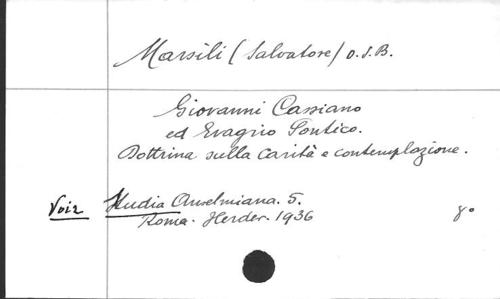 Marsili (Salvatore) O.S.B.
Giovanni Cassiano
ed Evagrio Pontico.
Dottrina sulla carità e contemplazione.
Voir Studia Anselmiana. 5.
Roma. Herder. 1936 8°